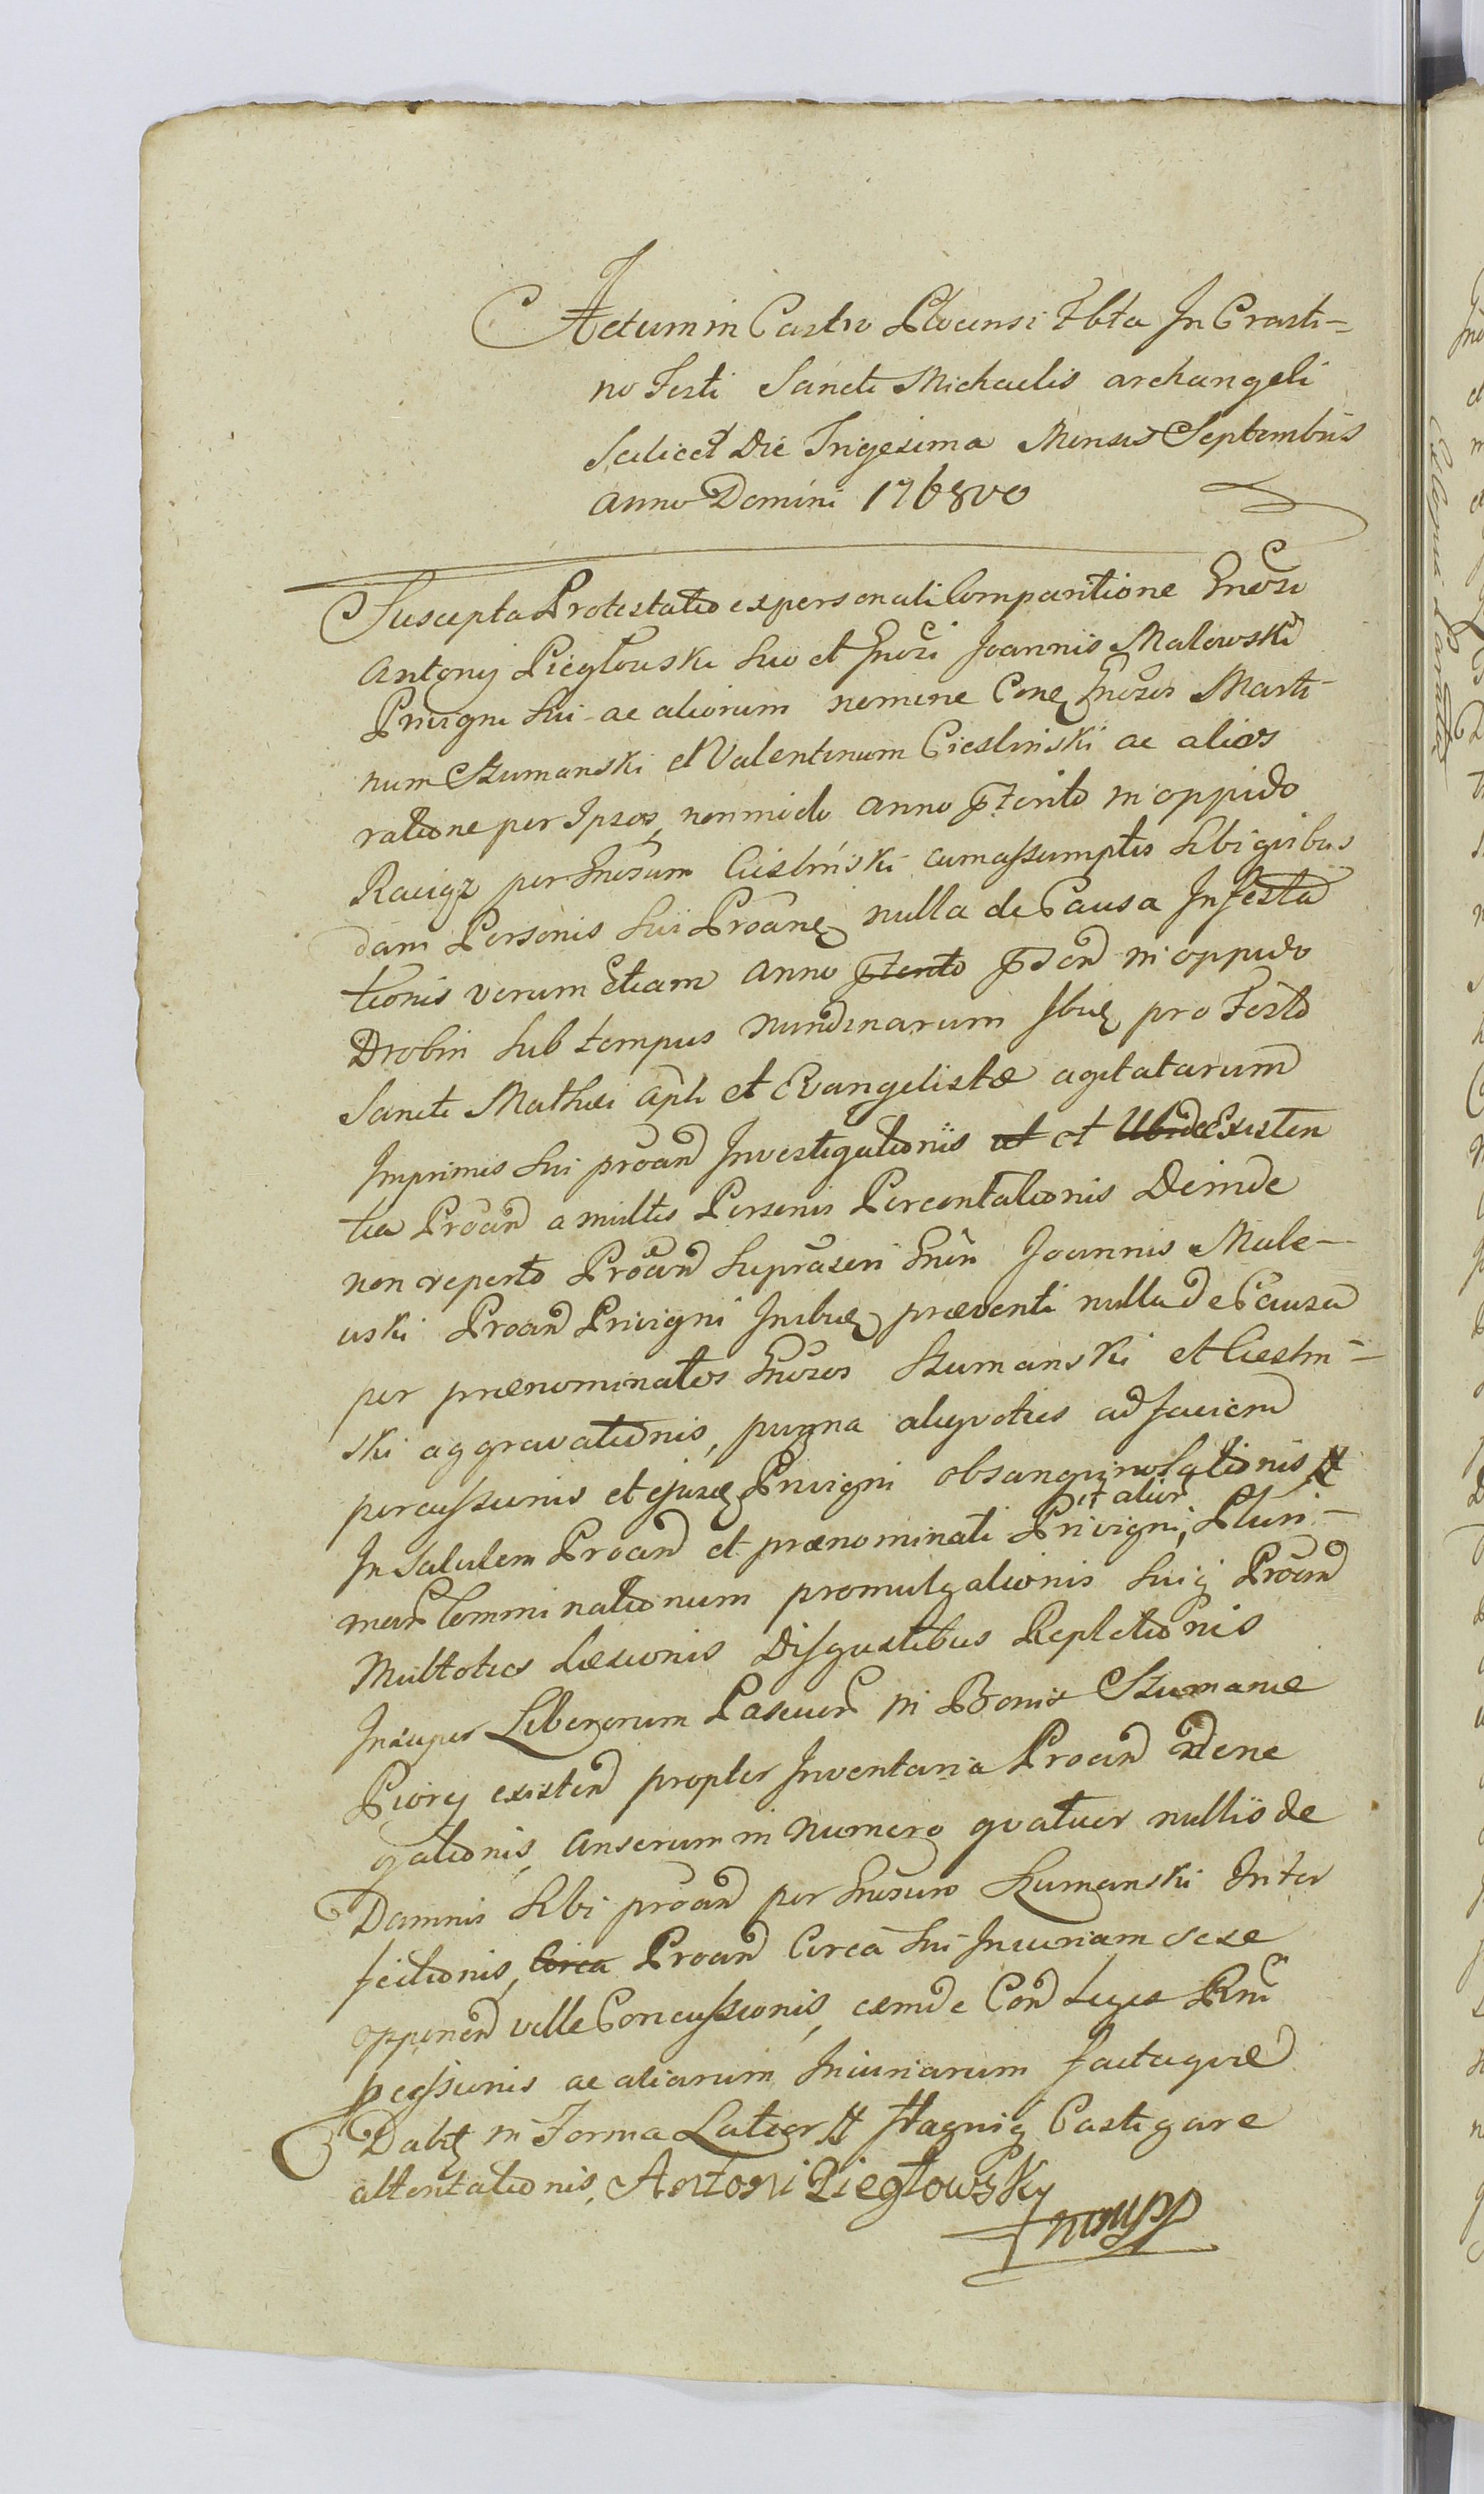 Actum in Castro Plocensi Fbta In Crasti-
no Festi Sancti Michaelis archangeli
Scilicet Die Trigesima Mensis Septembris
anno Domini 1768vo
Suscepta Protestatio ex personali Comparitione Gnosi
Antonij Piegłowski suo et Gnosi Joannis Malowski
Privigni sui ac aliorum nomine Cone Gnosos Marti-
num Szumanski et Valentinum Ciesliński ac alios
ratione per Ipsos, non modo anno pterito in oppido
Raciąz per Gnosum Ciesliński cum assumptis sibi quibus
dam Personis sui Proane nulla de Causa Infesta
tionis verum Etiam anno pterito pnti in oppido
Drobin sub tempus nundinarum Ibid pro Festo
Sancti Mathæi apli et Evangelistæ agitatarum
Imprimis sui proan Investigationis et et Ubi de Existen
tia Proan a multis Personis Percontationis Deinde
non reperto Proan supraseri Gnosi Joannis Male-
uski Proan Privigni Inibiq præventi nulla de Causa
per prænominatos Gnosos Szumanski et Ciesliń-
ski aggravationis, pugna aliquoties ad faciem
percussionis et ejusd Privigni obsanguinolationis
In salutem Proan et prænominati Privigni, et alior Pluri-
mar Comminationum promulgationis suiq Proan
Multoties Læsionis Disgustibus Repletionis
Insuper Liberorum Pascuor in Bonis Szumanie
Piory existen propter Inventaria Proan Dene
gationis, Anserum in numero quatuor nullis de
Damnis sibi proan per Gnosum Szumanski Inter
fectionis, Circa Proan Circa sui Iniuriam sese
opponen velle Concussionis, eamde Con Leges Rni
pessionis ac aliarum Iniuriarum factaque
Dabit in Forma Latior Hagniq Castigare
attentationis, Antoni Piegłowsky
mpp